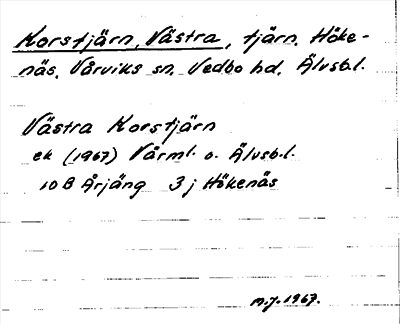 Korstjärn, Västra, tjärn. Höke-
näs. Vårviks sn. Vedbo hd. Älvsb.l.
Västra Korstjärn
ek (1967) Värml. o. Älvsb.l.
10 B Årjäng 3 j Hökenäs
M.J. 1967.